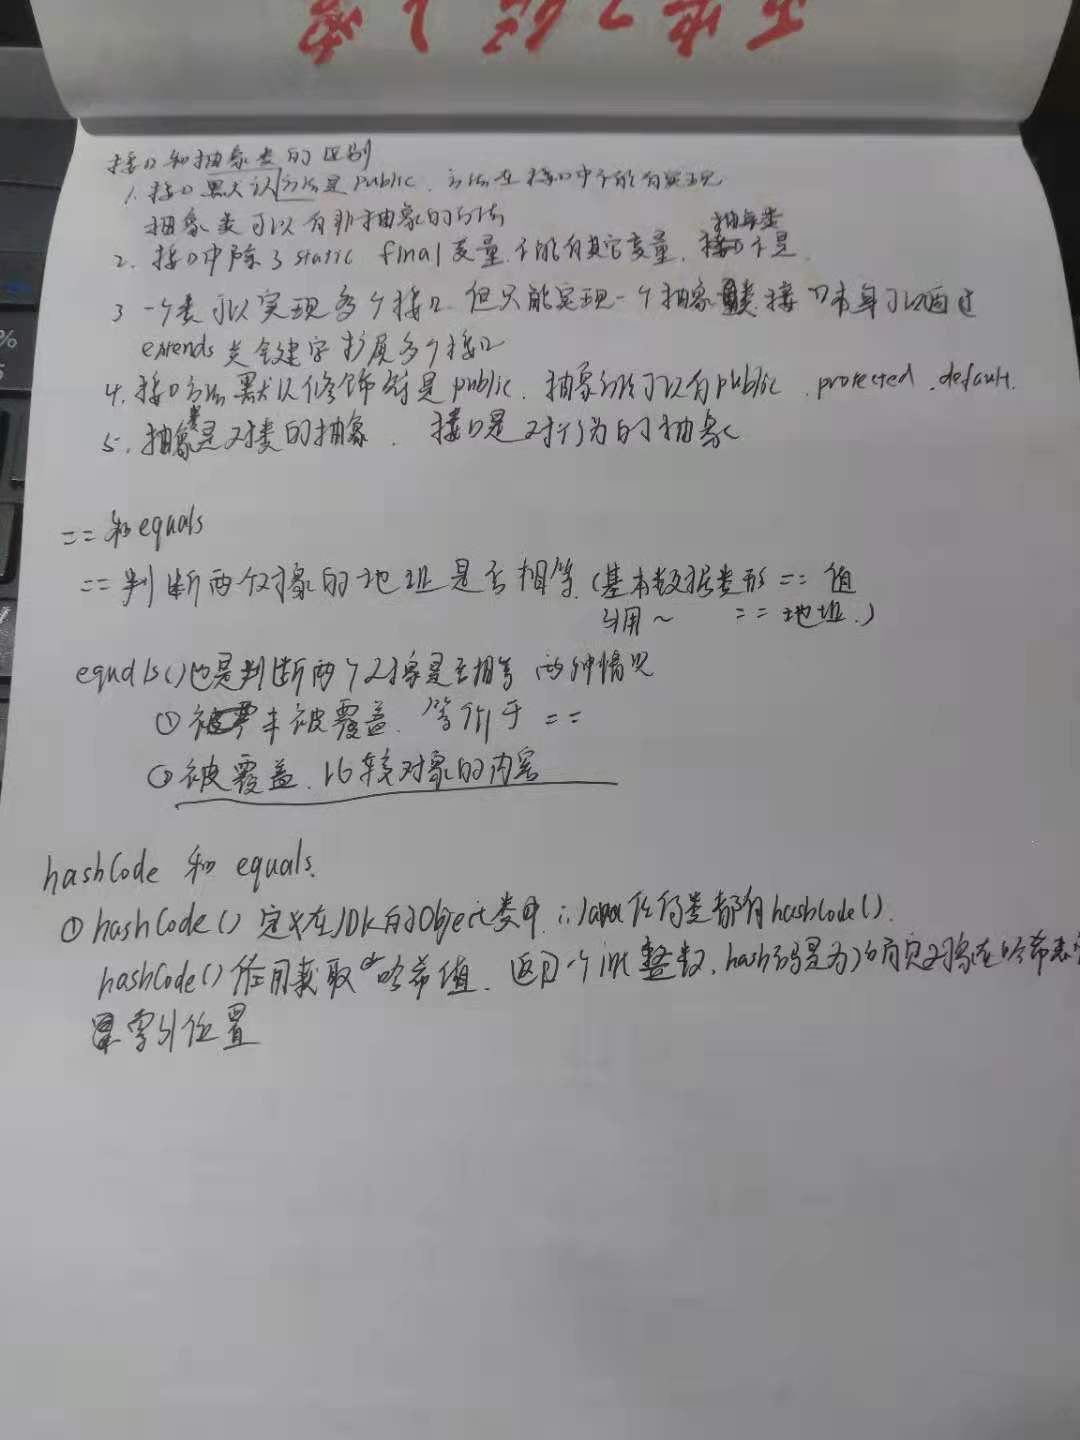 接口和抽象类的区别
1. 接口默认方法是public, 方法在接口中不能有实现
抽象类可以有非抽象的方法
抽象类
2. 接口中除了static final变量, 不能有其它变量, 不是.
3 一个类可以实现多个接口 但只能实现一个抽象类 接口本身可以通过
extends 关键字扩展多个接口
4. 接口方法默认修饰符是public. 抽象方法可以有public . protected . default.
5. 抽象类是对类的抽象 . 接口是对行为的抽象
== 和 equals
== 判断两个对象的地址是否相等. (基本数据类形 == 值
引用~ == 地址.)
equals()也是判断两个对象是否相等 两种情况
① 未被覆盖. 等价于 ==
② 被覆盖. 比较对象的内容
hashCode 和 equals.
① hashCode() 定义在JDK的Object类中 ∴Java任何类都有hashCode().
hashCode() 作用获取哈希值. 返回一个int整数. hash码是为了确定对象在哈希表
索引位置